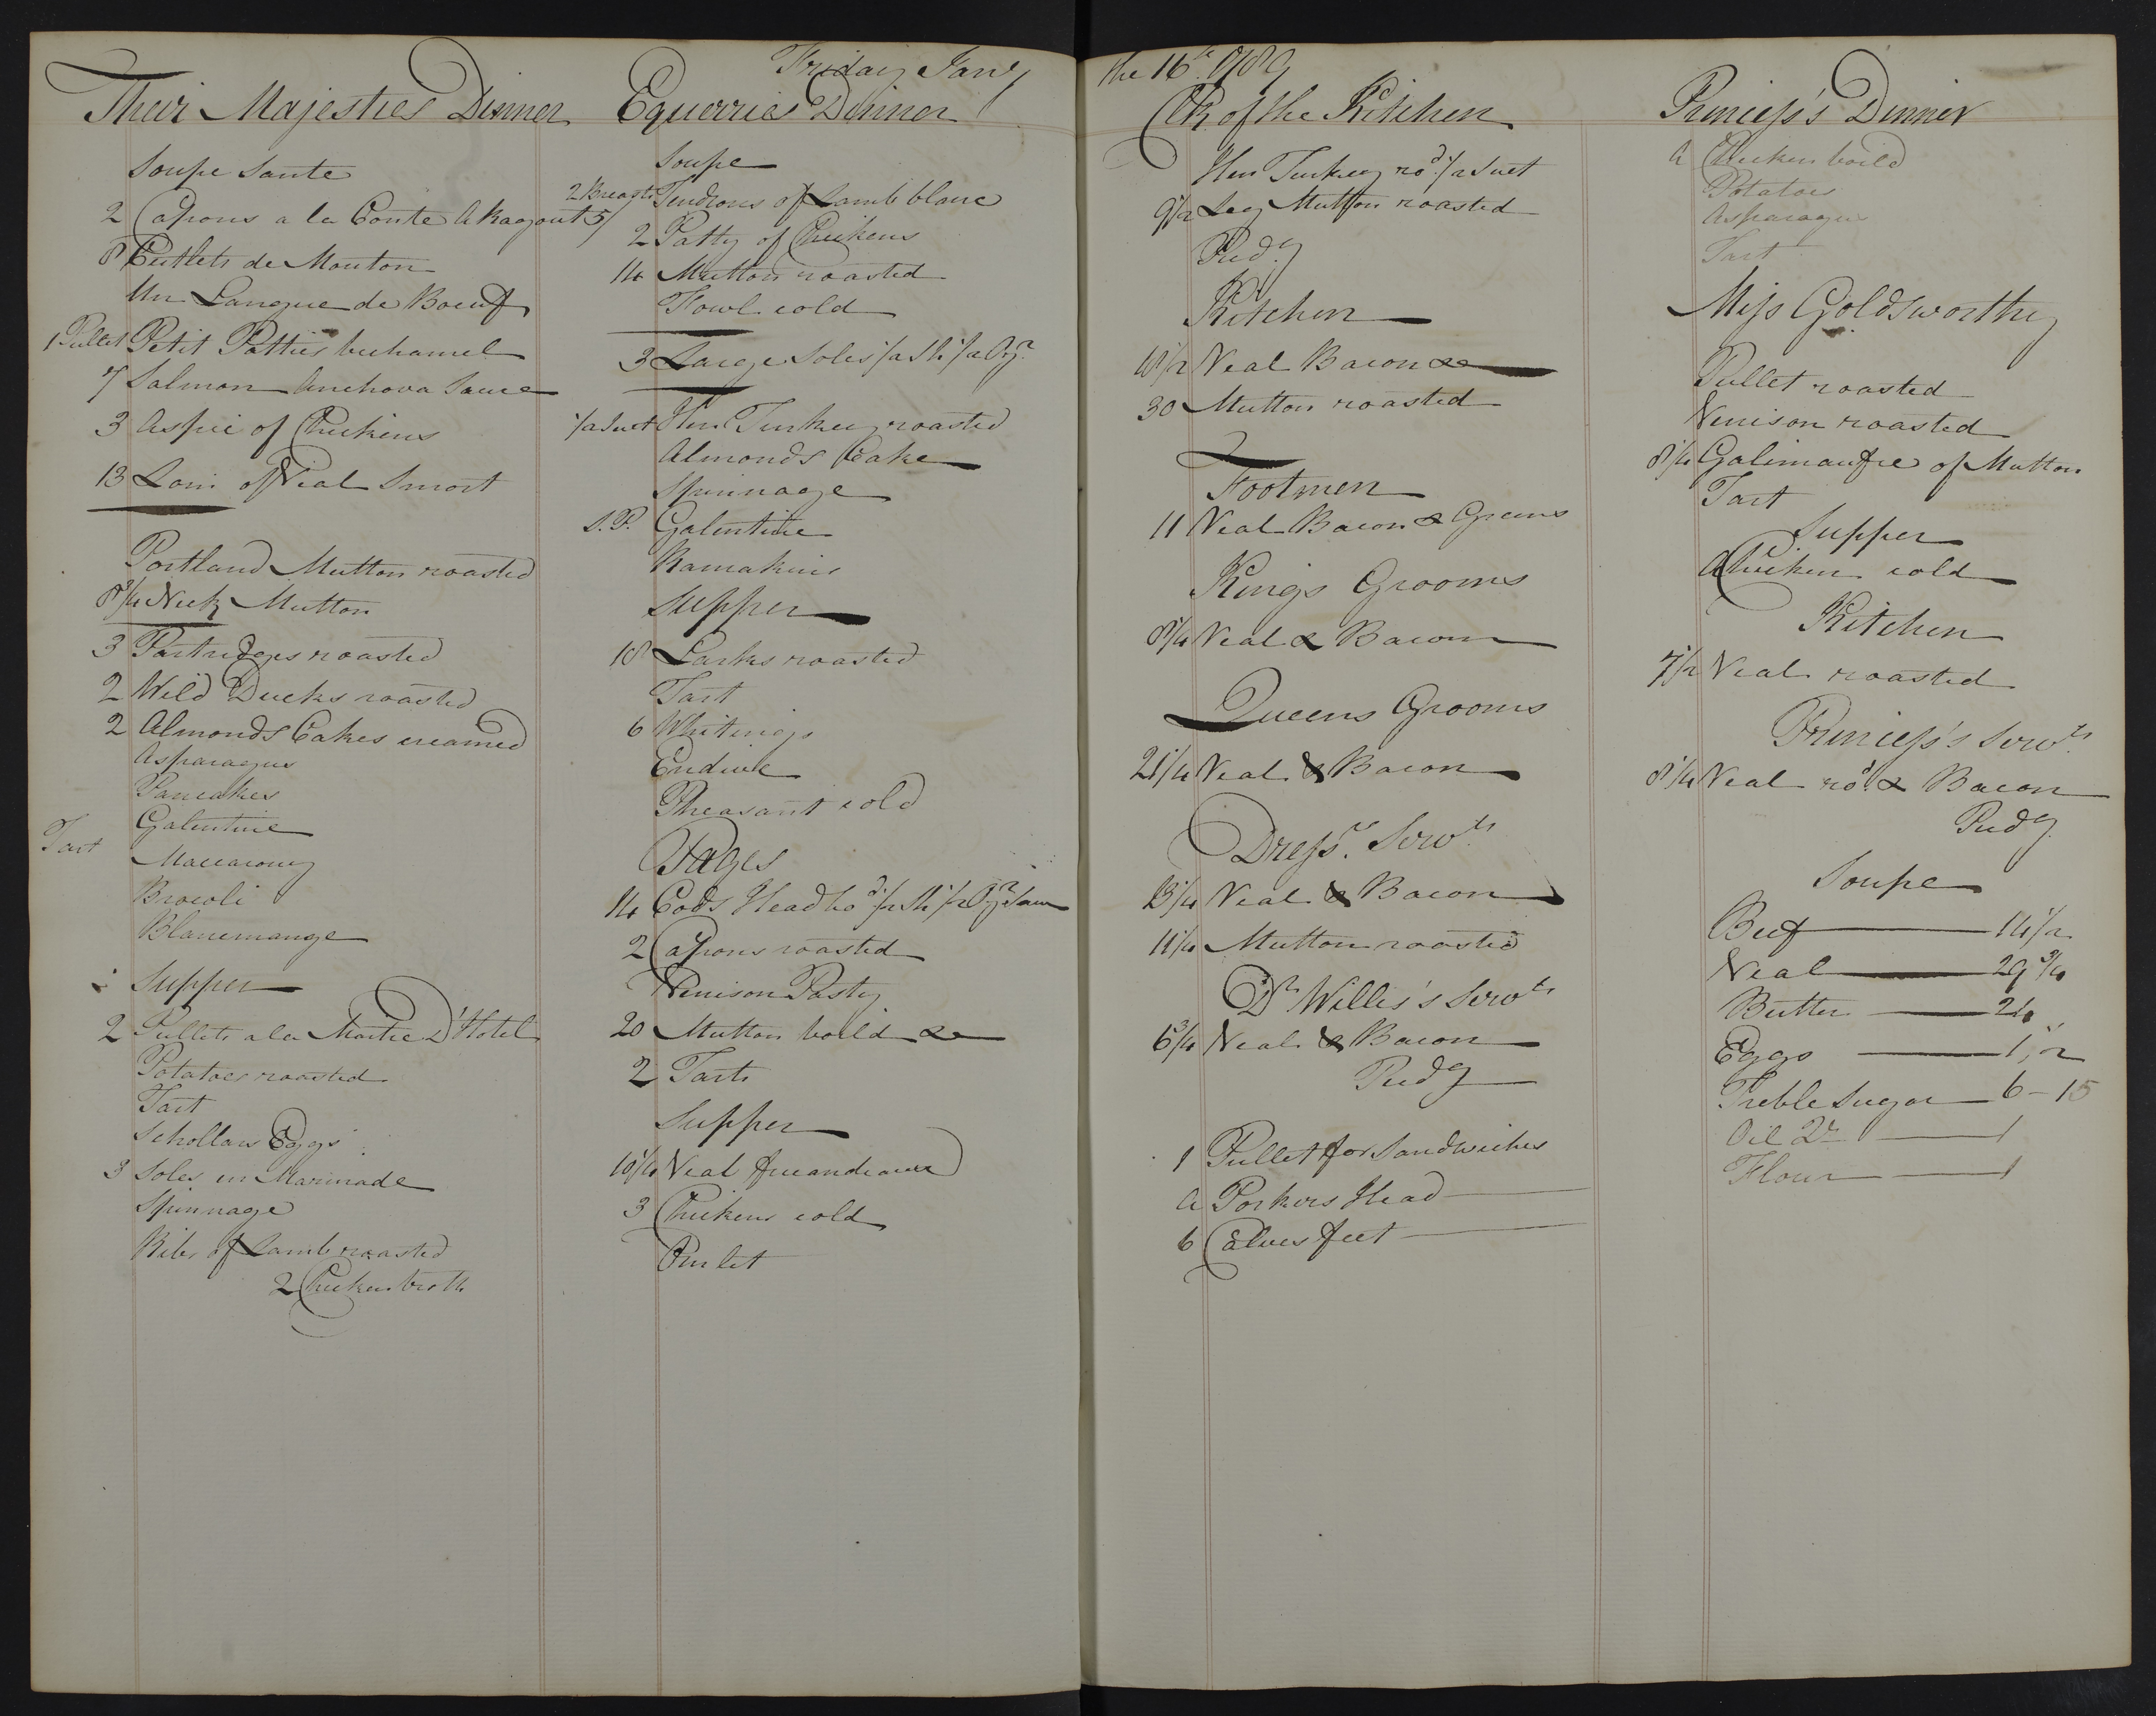 Friday Janry the 16th 1789
Their Majesties Dinner
Soupe Sante
2 Capons a la Conte A Ragout 5/
8 Cutlets de Mouton
Un Langue de Boeuf
1 Pullet Petit Patties bechamel
7 Salmon Anchova Sauce
3 Aspic of Chickens
13 Loin of Veal Smort
Portland Mutton roasted
8 3/4 Neck Mutton
3 Partridges roasted
2 Wild Ducks roasted
2 Almonds Cakes creamed
Asparagus
Pancakes
Galentine
Tart
Maccarony
Brocoli
Blancmange
Supper
2 Pullets a la Maitre D'Hotel
Potatoes roasted
Tart
Schollars Eggs
3 Soles en Marinade
Spinnage
Ribs of Lamb roasted
2 Chicken broth
Equerries Dinner
Soupe
2 Breasts Tendrons of Lamb blanc
2 Patty of Chickens
14 Mutton roasted
Fowl cold
3 Large Soles 1/2 Sh 1/2 Oyr
1/2 Suet Hen Turkey roasted
Almonds Cake
Spinnage
S. P. Galentine
Ramakins
Supper
18 Larks roasted
Tart
6 Whitings
Endive
Pheasant cold
Pages
14 Cods Head bo.d 1/2 Sh 1/2 Oyr Sauce
2 Capons roasted
Venison Pasty
20 Mutton boild &c
2 Tarts
Supper
10 1/4 Veal fricandeaux
3 Chickens cold
Omlet
Clk of the Kitchen
Hen Turkey ro.d 1/2 Suet
9 1/2 Leg Mutton roasted
Pud.g
Kitchen
18 1/2 Veal Bacon &c
30 Mutton roasted
Footmen
11 Veal Bacon & Greens
Kings Grooms
8 1/4 Veal & Bacon
Queens Grooms
21 1/4 Veal & Bacon
Dressrs Servts
13 1/4 Veal & Bacon
11 1/4 Mutton roasted
Dr Willis's Servts
6 3/4 Veal & Bacon
Pudg
1 Pullet for Sandwiches
a Porkers Head
6 Calves feet
Princess's Dinner
a Chicken boild
Potatoes
Asparagus
Tart
Miss Goldsworthy
Pullet roasted
Venison roasted
8 1/4 Galimaufre of Mutton
Tart
Supper
A Chicken cold
Kitchen
7 1/2 Veal roasted
Princess's Servts
8 1/4 Veal ro.d & Bacon
Pudg
Soupe
Beef 14 1/2
Veal 29 3/4
Butter 24
Eggs 1,,2
Treble Sugar 6 - 15
Oil 2r 1
Flour 1